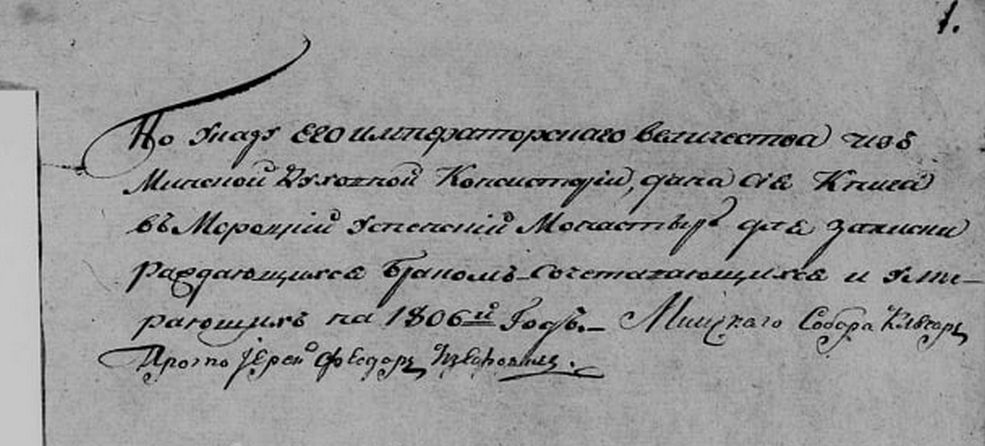 1.
По Указу Его императорскаго величества изъ
Минской Духовной Консисторіи, дана Сія Книга
въ Мороцкій Успенскій Монастырь для записки
раждающихся Бракомъ сочетавающихся и уми-
рающихъ на 1806й Годъ. Минскаго Собора Ключарь
Протоіерей Федоръ